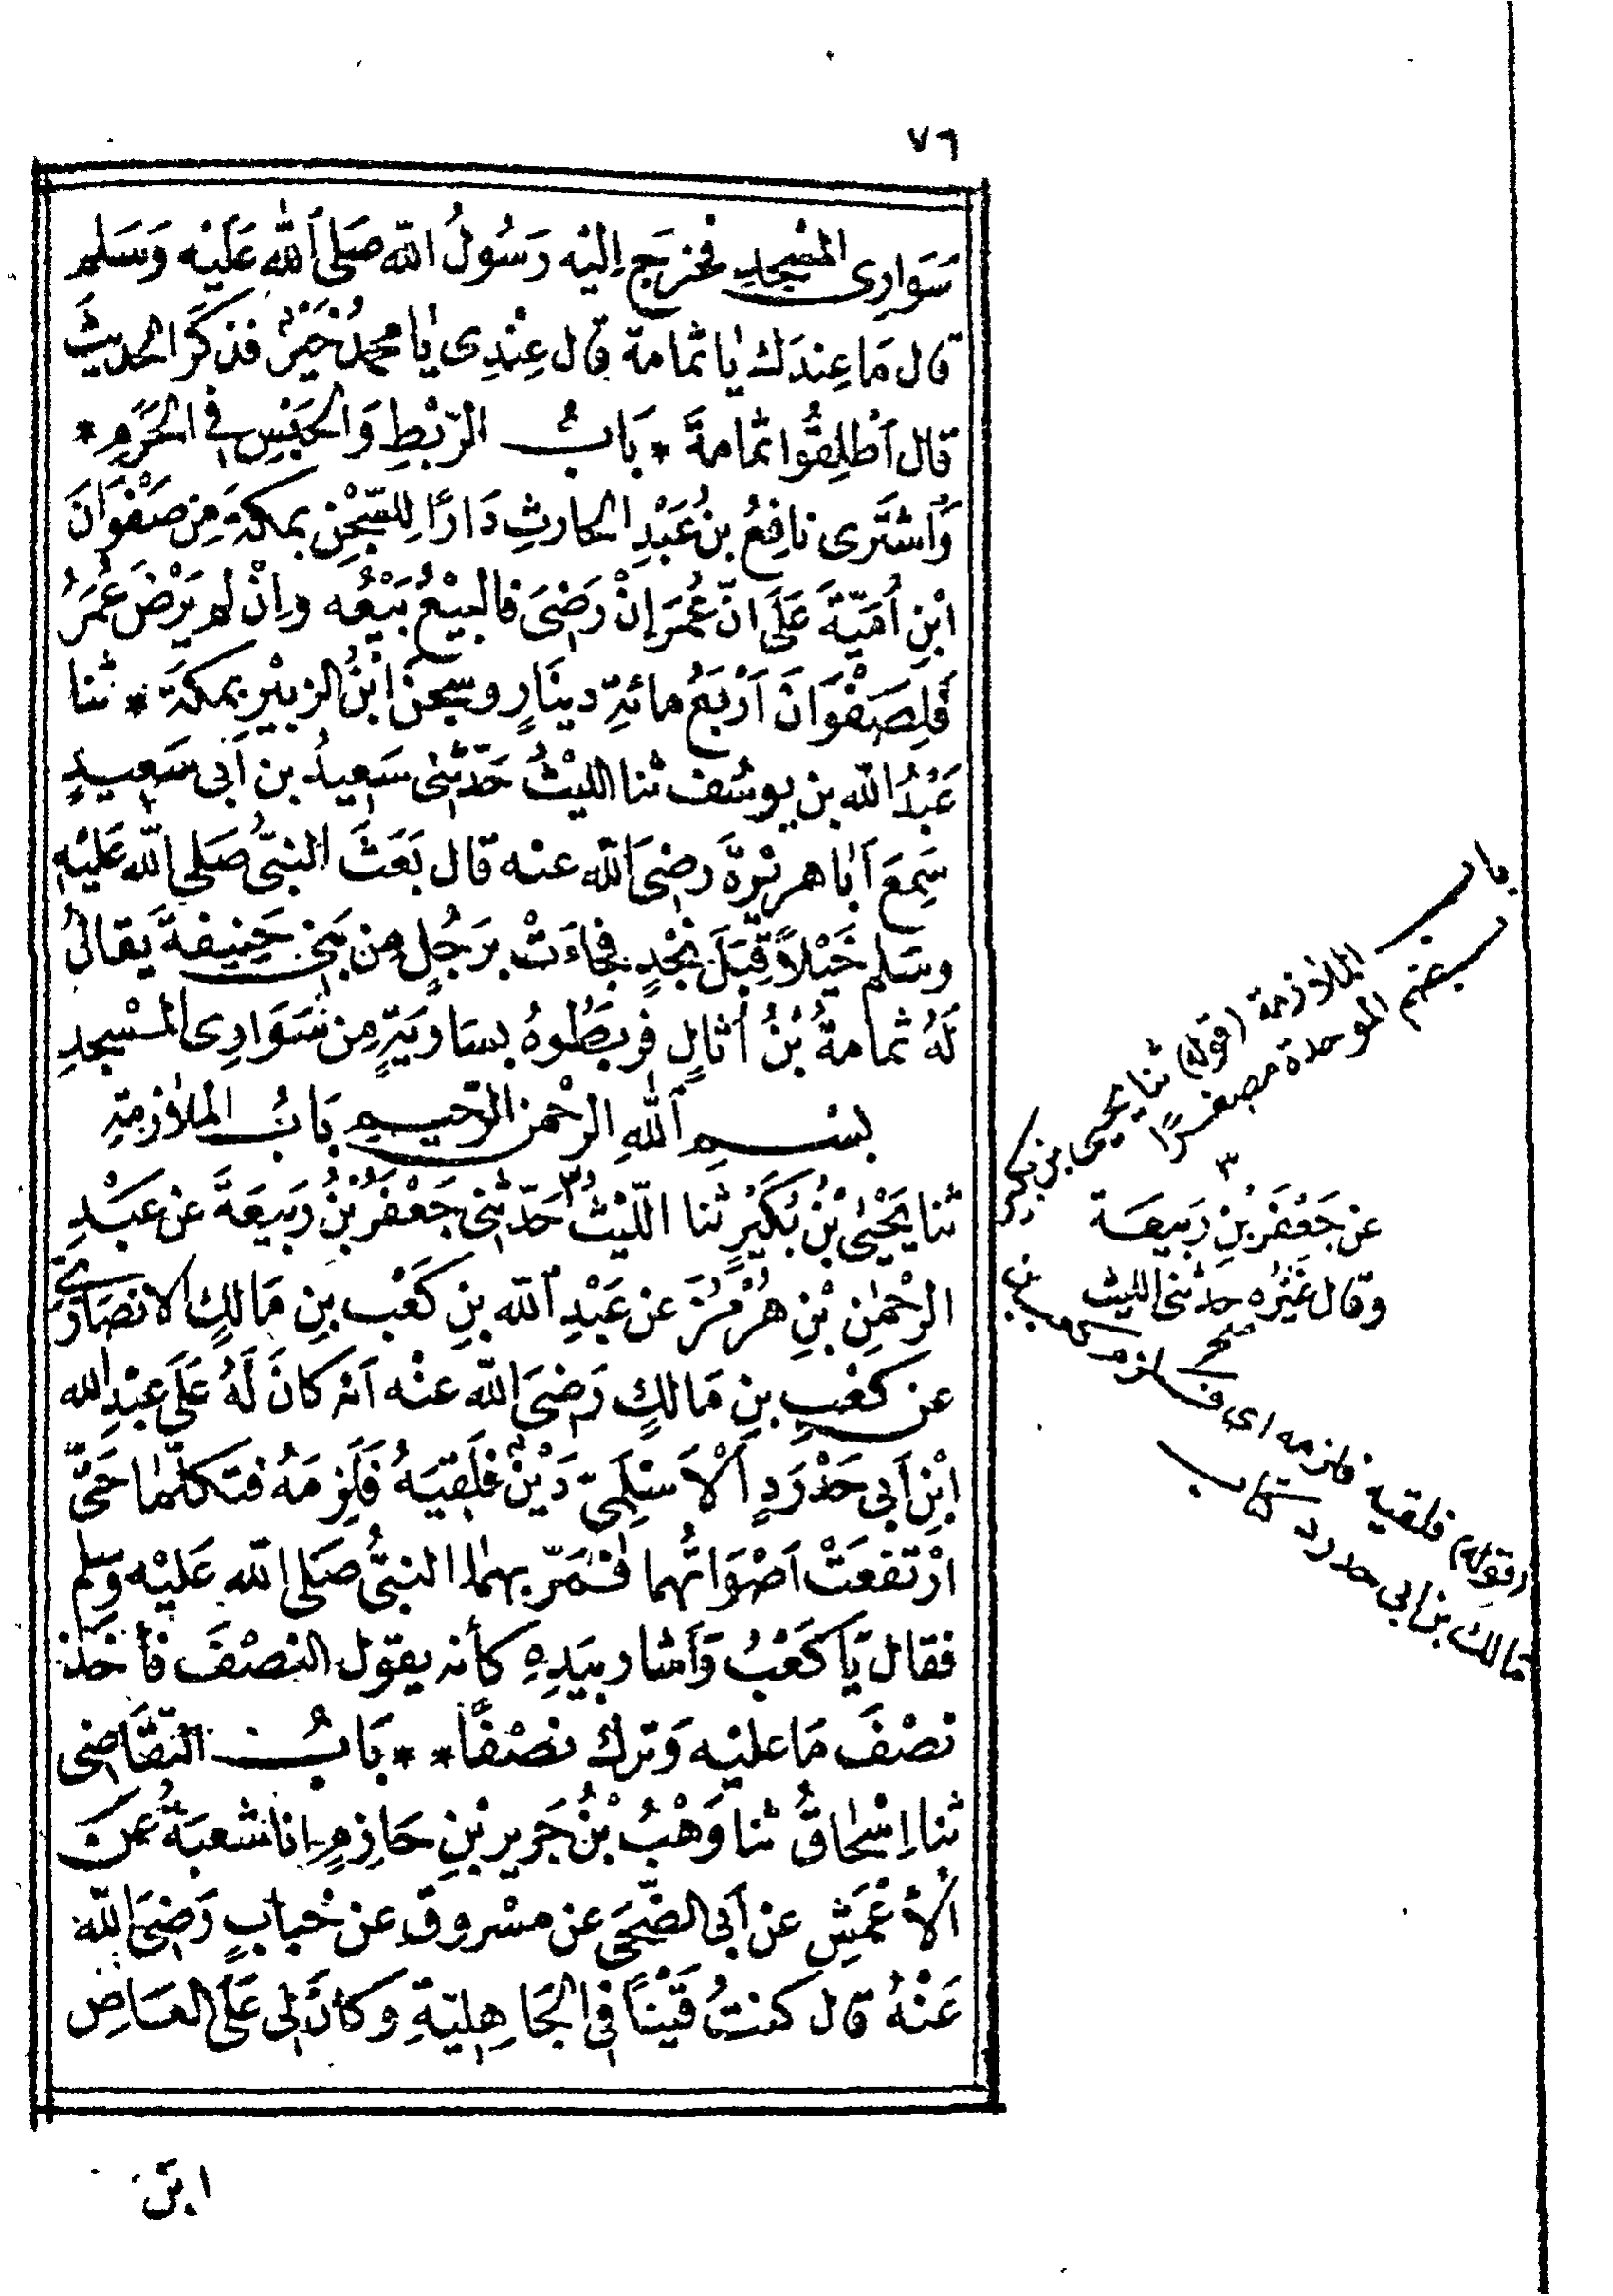 ٧٦
سَوَارِى المَسْجِدِ فخرَجَ اِلَيْه رَسُولُ اللّه صَلى اللّٰه عَلَيْه وَسَلم
قال مَا عِندَكَ يَا ثمامة قال عِنْدِى يَا محمدُ خَيْرٌ فذكَرَ الحديثَ
قال اَطْلِقُوا ثمامةَ * بَابُ الرّبْطِ وَالحَبْسِ فى الحَرَمِ *
وَاشتَرى نافِعُ بنُ عَبْدِ الحارثِ دَارًا لِلسّجْنِ بمكةَ مِن صَفْوَانَ
ابْنِ اُمَيّةَ عَلَى انّ عُمَرَ إنْ رَضِىَ فالبيْعُ بَيْعُه وإنْ لم يَرْضَ عُمَرُ
فَلِصَفْوَانَ اَرْبَعُ مائةِ دينَارٍ وسجنَ ابْنُ الزبيْرِ بمكةَ * ثنا
عَبْدُ اللّه بن يوسُف ثنا الليْثُ حَدّثنى سَعِيدُ بن اَبى سَعِيدٍ
سَمِعَ اَبَا هريْرَةَ رَضِىَ اللّه عنه قال بَعَثَ النبىُّ صَلى اللّه عَلَيْهِ
وسَلم خَيْلاً قِبَلَ نَجْدٍ فجَاءَتْ برَجُلٍ مِن بَنى حَنِيفةَ يقالُ
لَهُ ثمامةُ بْنُ اُثالٍ فربَطُوهُ بسَاريَةٍ مِن سَوَارِى المسْجدِ
بسْمِ اللّٰهِ الرحْمن الرّحيمِ بَابُ الملازمةِ
ثنا يَحْيىٰ بْنُ بُكَيْرٍ ثنا اللّيْثُ ٣ حَدّثنى جَعْفَرُ بْنُ رَبيعَةَ عن عَبْدِ
الرحْمٰنِ بْنِ هُرْمُزَ عن عَبْدِ اللّه بنِ كَعْب بنِ مَالكٍ الانصَارىّ
عن كعْبِ بنِ مَالكٍ رَضِىَ اللّه عنْه اَنه كانَ لَهُ عَلَى عبْدِ الله
ابْنِ اَبى حَدْرَدٍ اَلْاَسْلَمِىّ دَيْنٌ فلَقِيَهُ فَلَزِمَهُ فتَكلّمَا حَتَّى
ارْتفعَتْ اَصْوَاتُهما فمَرّ بهمَا النبىُّ صَلى اللّه عَلَيْه وَسلم
فقال يَا كَعْبُ وَاَشار بيَدِهِ كأنه يقول النصْفَ فأخَذَ
نصْفَ مَا عليْه وَترك نصْفًا * * بَابُ التقَاضِى
ثنا اِسْحَاقُ ثنا وَهْبُ بْنُ جَرير بْنِ حَازِمٍ انا شعبَةُ عَن
الأعْمَشِ عن اَبى الضّحَى عن مسْروقٍ عن خبابٍ رَضِىَ اللّه
عَنْهُ قال كنتُ قَيْنًا فى الجَاهِليّةِ وكانَ لى عَلَى العَاصِ
ابن
باب الملازمة (قوله) ثنا يحيى بن بكير
بضم الموحدة مصغرًا
٣
عن جَعْفَر بنِ رَبيعَة
وقال غَيْرُه حدثنى الليث
صح
(قوله) فلقيه فلزمه اى فلزم كعب بن
مالك بن ابى حدرد